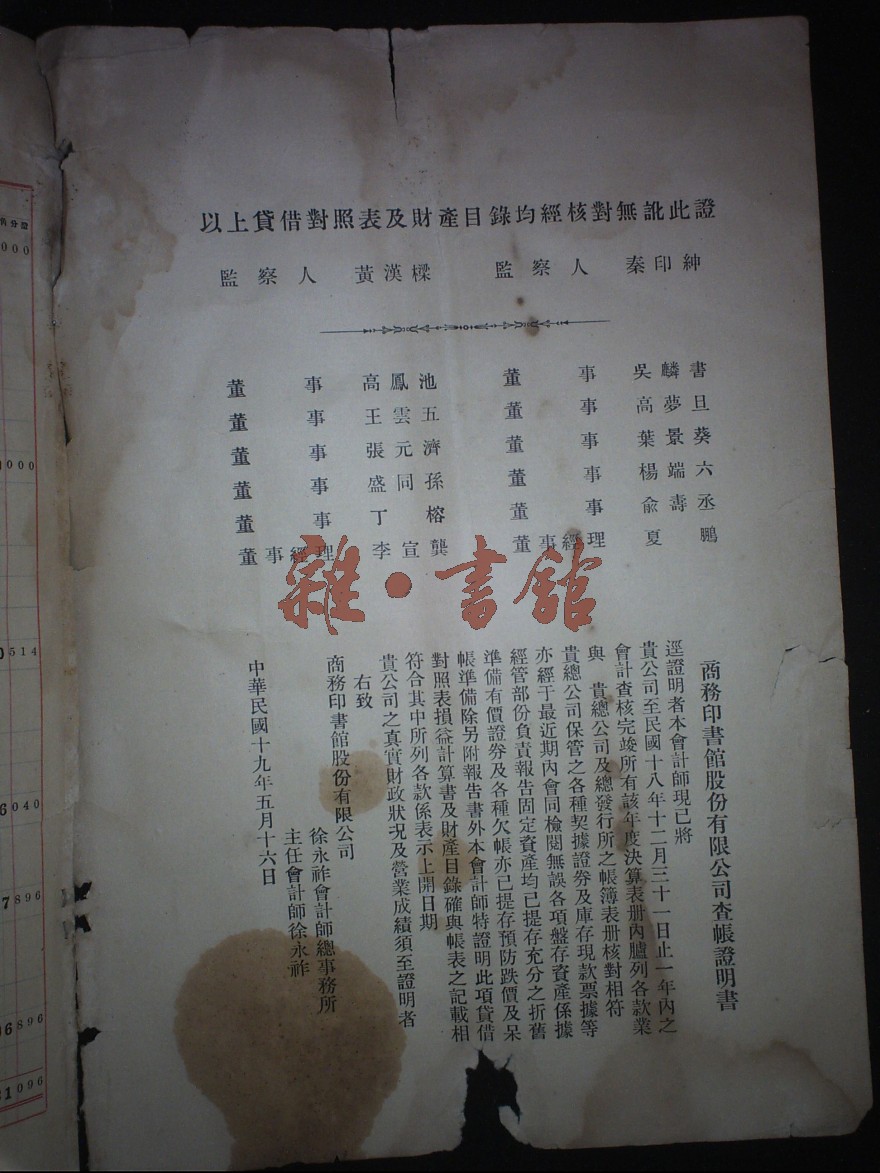 以上貸借對照表及財產目錄均經核對無訛此證
監察人 黃漢樑 監察人 秦印紳
董事 高鳳池 董事 吳麟書
董事 王雲五 董事 高夢旦
董事 張元濟 董事 葉景葵
董事 盛同孫 董事 楊端六
董事 丁榕 董事 俞壽丞
董事經理 李宣龔 董事經理 夏鵬
雜·書館
商務印書館股份有限公司查帳證明書
逕證明者本會計師現已將
貴公司至民國十八年十二月三十一日止一年內之
會計查核完竣所有該年度決算表册內臚列各款業
與 貴總公司及總發行所之帳簿表册核對相符
貴總公司保管之各種契據證券及庫存現款票據等
亦經于最近期內會同檢閱無誤各項盤存資產係據
經管部份負責報告固定資產均已提存充分之折舊
準備有價證券及各種欠帳亦已提存預防跌價及呆
帳準備除另附報告書外本會計師特證明此項貸借
對照表損益計算書及財產目錄確與帳表之記載相
符合其中所列各款係表示上開日期
貴公司之真實財政狀況及營業成績須至證明者
右致
商務印書館股份有限公司
徐永祚會計師總事務所
主任會計師徐永祚
中華民國十九年五月十六日
000
000
514
6040
7896
6896
1096